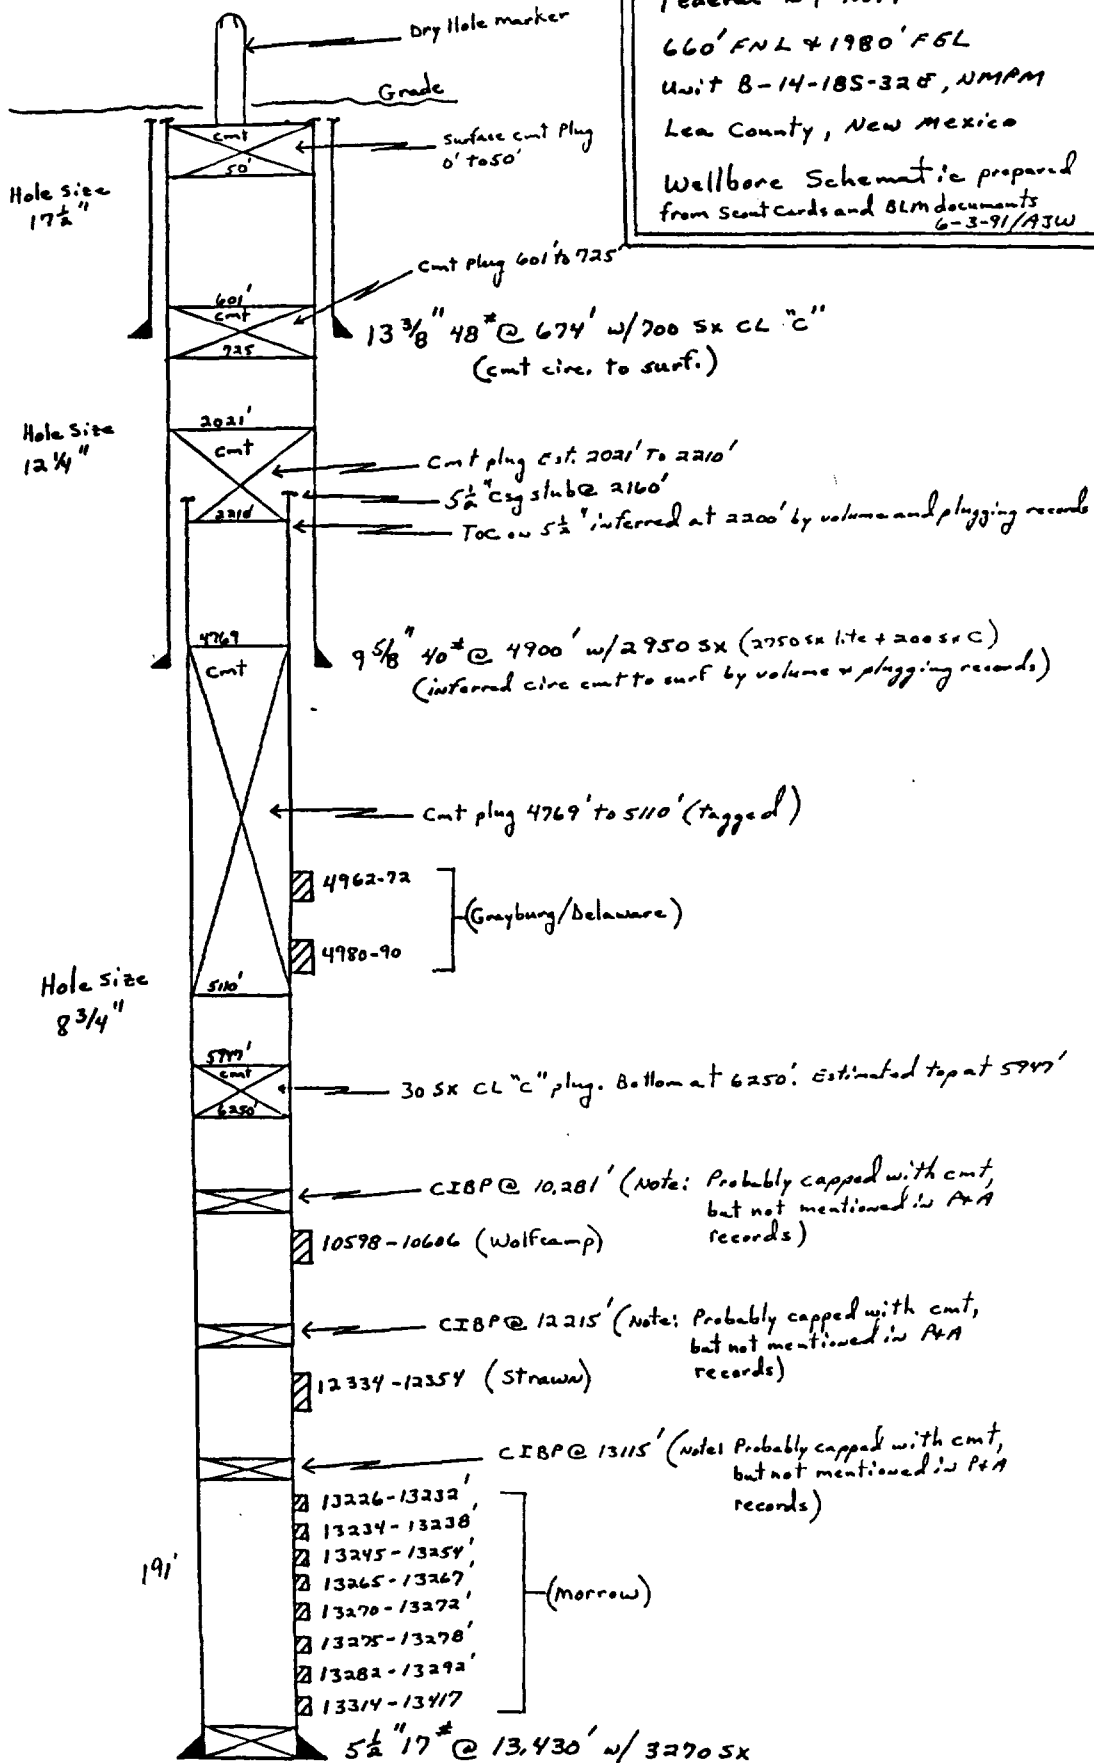 660' FNL & 1980' FEL
Unit B-14-18S-32E, NMPM
Lea County, New Mexico
Wellbore Schematic prepared
from Scout Cards and BLM documents
6-3-91/AJW
Dry Hole marker
Grade
cmt
50'
Surface cmt Plug
0' to 50'
Hole Size
17 1/2"
Cmt Plug 601' to 725'
601'
cmt
725
13 3/8" 48# @ 674' w/700 sx CL "C"
(cmt circ. to surf.)
Hole Size
12 1/4"
2021'
cmt
2210'
Cmt plug Est. 2021' To 2210'
5 1/2" Csg stub @ 2160'
TOC on 5 1/2" inferred at 2200' by volume and plugging records
4769
cmt
9 5/8" 40# @ 4900' w/2950 sx (2750 sx lite + 200 sx C)
(inferred circ cmt to surf by volume & plugging records)
Cmt plug 4769' to 5110' (tagged)
4962-72
(Grayburg/Delaware)
4980-90
Hole Size
8 3/4"
5110'
5947'
cmt
6250'
30 SX CL "C" plug. Bottom at 6250'. Estimated top at 5947'
CIBP @ 10,281' (Note: Probably capped with cmt,
but not mentioned in P+A
records)
10598-10606 (Wolfcamp)
CIBP @ 12215' (Note: Probably capped with cmt,
but not mentioned in P+A
records)
12334-12354 (Strawn)
CIBP @ 13115' (Note: Probably capped with cmt,
but not mentioned in P+A
records)
13226-13232'
13234-13238'
13245-13254'
13265-13267'
13270-13272'
13275-13278'
13282-13292'
13314-13417
(Morrow)
191'
5 1/2" 17# @ 13,430' w/ 3270 sx